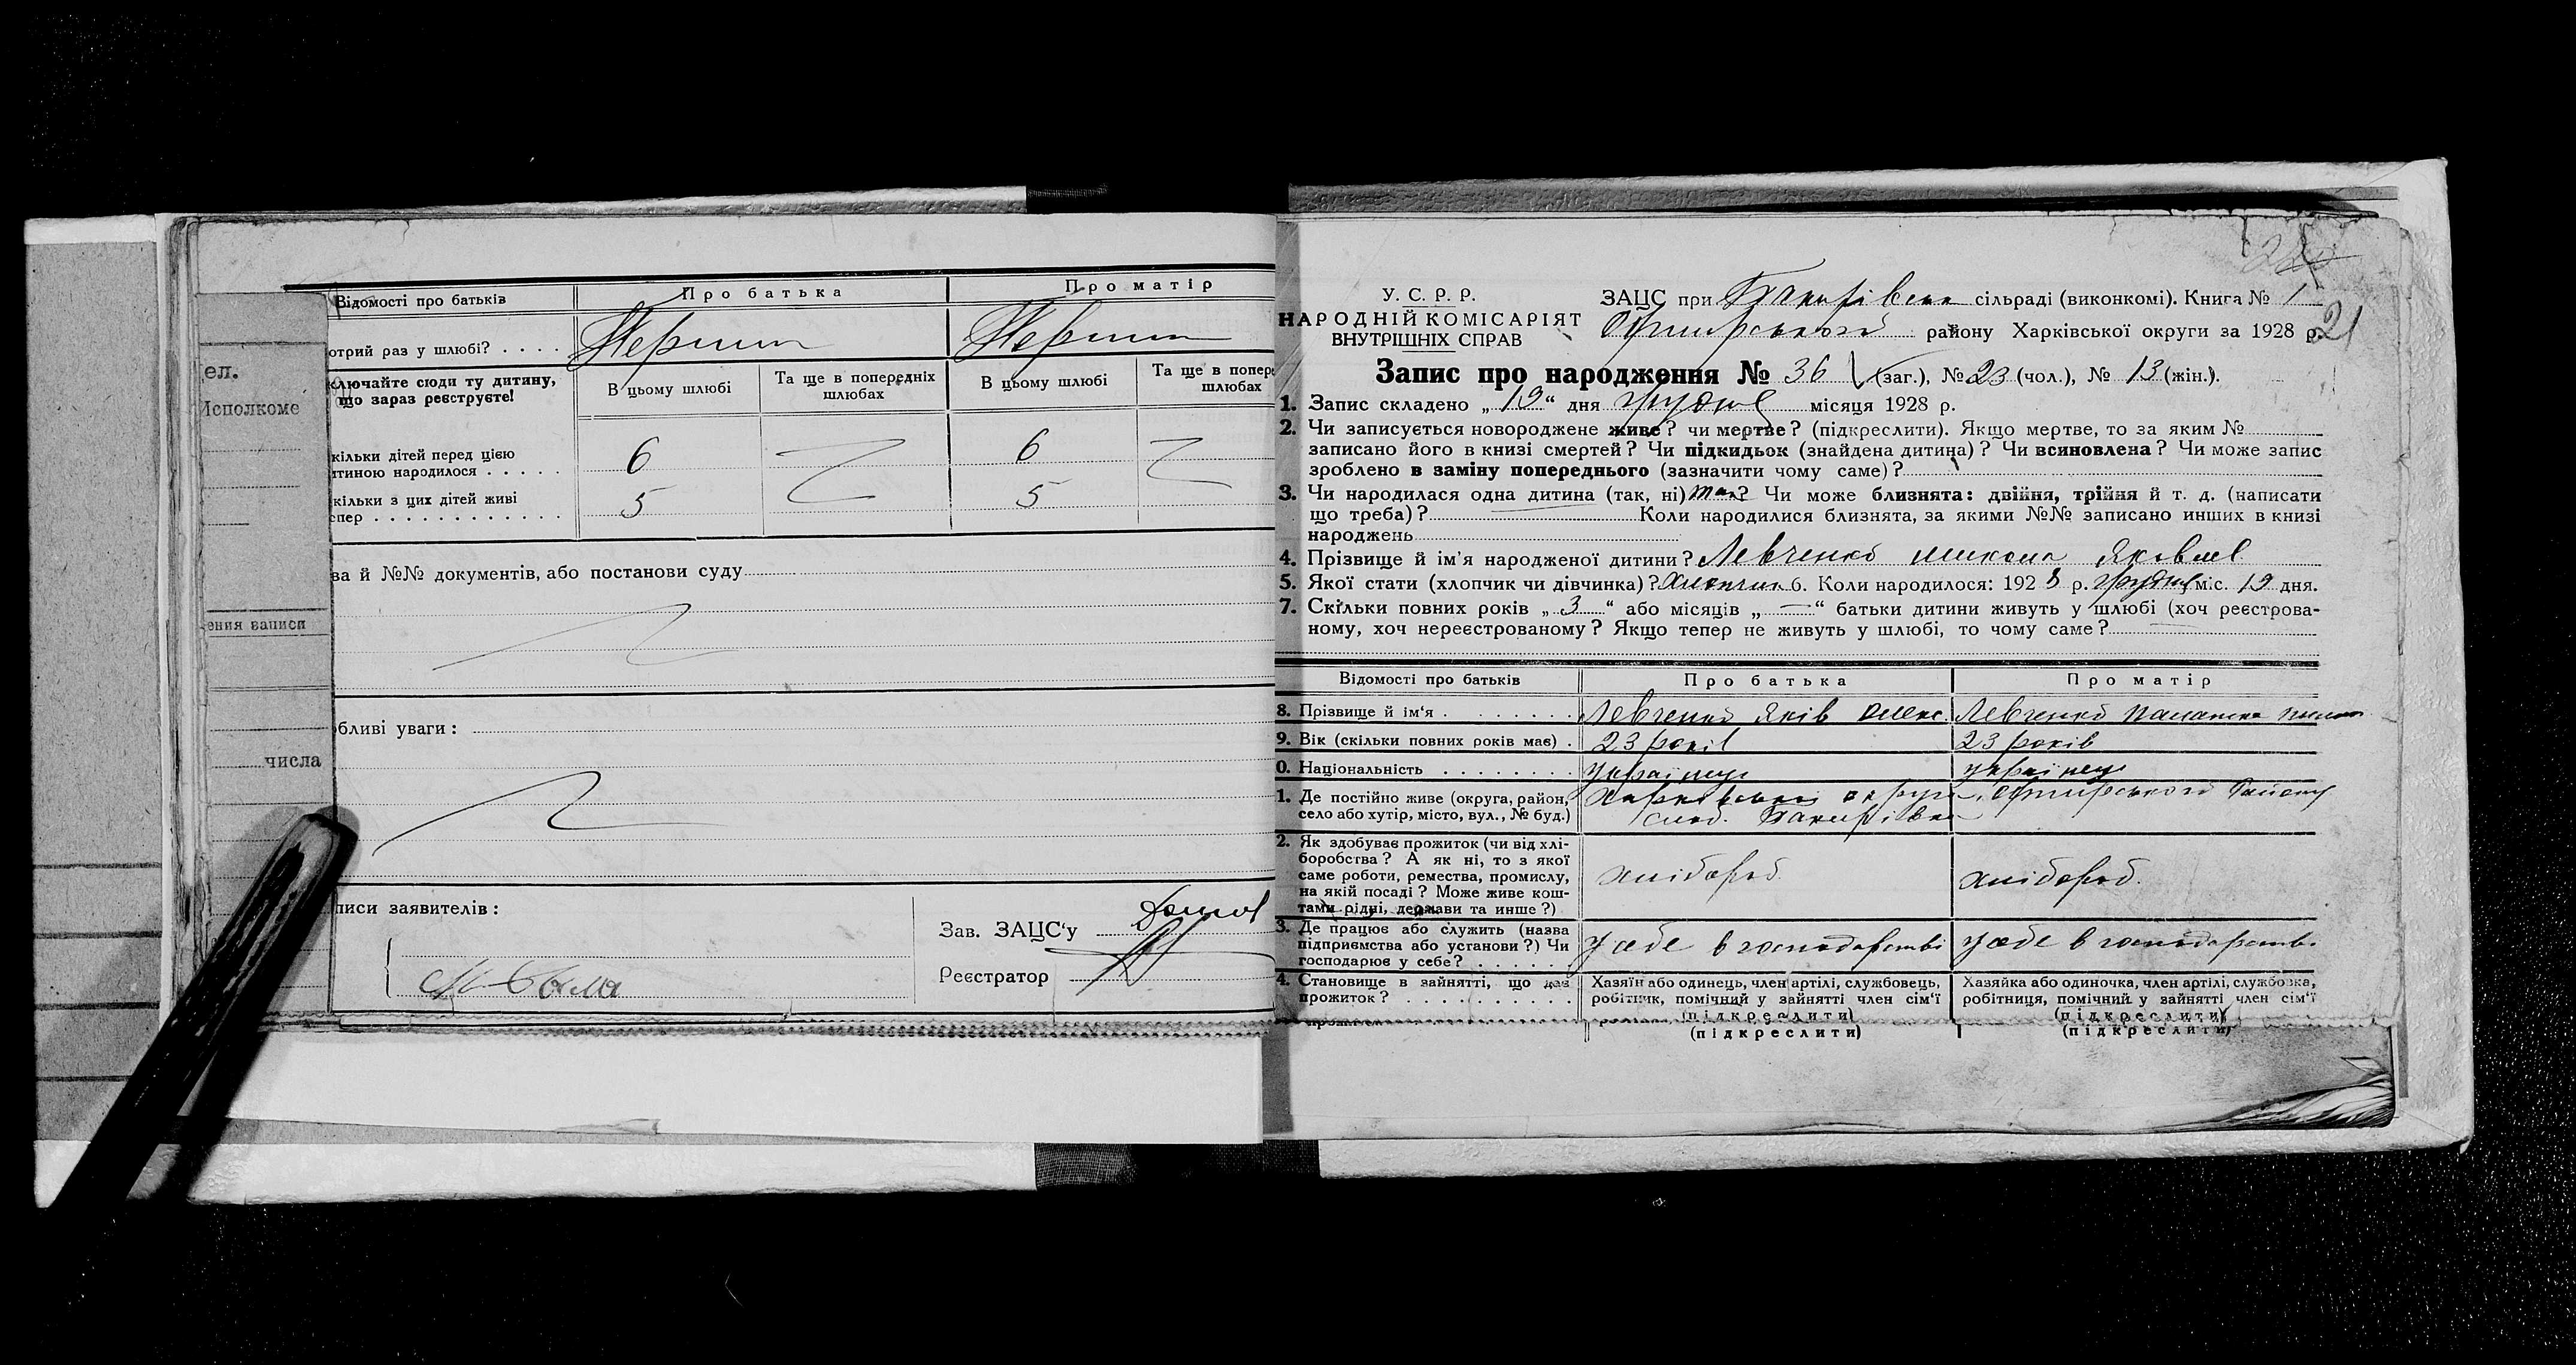 ел.
Исполкоме
ения записи
числа
Відомості про батьків
Про батька
Про матір
отрий раз у шлюбі? . . . .
Перший
Перший
ключайте сюди ту дитину,
що зараз реєструєте!
В цьому шлюбі
Та ще в попередніх
шлюбах
В цьому шлюбі
Та ще в попере
шлюбах
кільки дітей перед цією
итиною народилося . . . . .
6
6
кільки з цих дітей живі
епер . . . . . . . . . . . .
5
5
ва й №№ документів, або постанови суду
бливі уваги:
писи заявителів:
Зав. ЗАЦС'у
Реєстратор
21
У. С. Р. Р.
НАРОДНІЙ КОМІСАРІЯТ
ВНУТРІШНІХ СПРАВ
ЗАЦС при сільраді (виконкомі). Книга № 1
району Харківської округи за 1928 р.
Запис про народження № 36 (заг.), № 23 (чол.), № 13 (жін.).
1. Запис складено „ 19 “ дня грудня місяця 1928 р.
2. Чи записується новороджене живе? чи мертве? (підкреслити). Якщо мертве, то за яким №
записано його в книзі смертей? Чи підкидьок (знайдена дитина)? Чи всиновлена? Чи може запис
зроблено в заміну попереднього (зазначити чому саме)?
3. Чи народилася одна дитина (так, ні) так? Чи може близнята: двійня, трійня й т. д. (написати
що треба)? Коли народилися близнята, за якими №№ записано инших в книзі
народжень
4. Прізвище й ім'я народженої дитини? Левченко Микола Яковлев
5. Якої стати (хлопчик чи дівчинка)? Хлопчик 6. Коли народилося: 1928 р. грудня міс. 19 дня.
7. Скільки повних років „ 3 “ або місяців „ — “ батьки дитини живуть у шлюбі (хоч реєстрова-
ному, хоч нереєстрованому? Якщо тепер не живуть у шлюбі, то чому саме?
Відомості про батьків
Про батька
Про матір
8. Прізвище й ім'я . . . . . . .
Левченко Яків Олекс.
Левченко
9. Вік (скільки повних років має) .
23 років
23 років
0. Національність . . . . . . .
українець
українець
1. Де постійно живе (округа, район,
село або хутір, місто, вул., № буд.)
Харківська округа, району
слоб.
2. Як здобуває прожиток (чи від хлі-
боробства? А як ні, то з якої
саме роботи, ремества, промислу,
на якій посаді? Може живе кош-
тами рідні, держави та инше?)
хлібороб.
хлібороб.
3. Де працює або служить (назва
підприємства або установи?) Чи
господарює у себе? . . . . . .
У себе в господарстві
У себе в господарстві
4. Становище в зайнятті, що дає
прожиток? . . . . . . . . . .
Хазяїн або одинець, член артілі, службовець,
робітник, помічний у зайнятті член сім'ї
(підкреслити)
Хазяйка або одиночка, член артілі, службовка,
робітниця, помічний у зайнятті член сім'ї
(підкреслити)
(підкреслити)
(підкреслити)